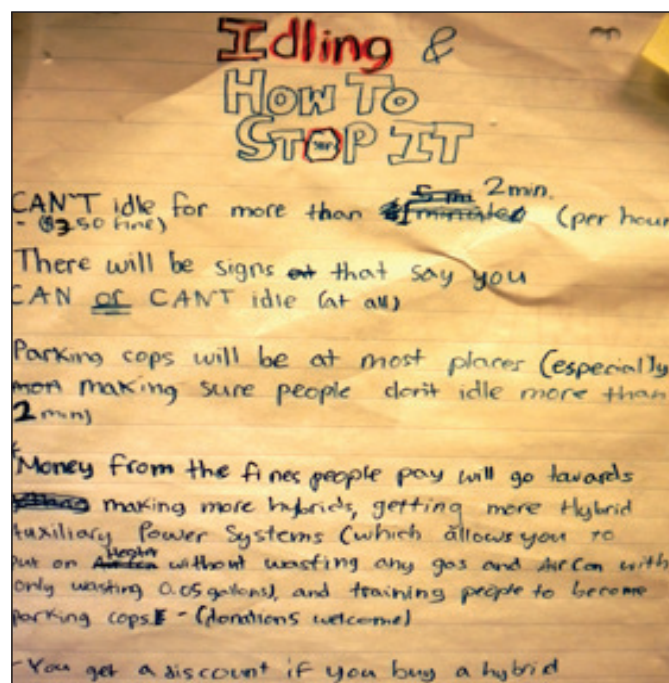 Idling &
How To
STOP IT
CAN'T idle for more than 2min. (per hour
- ($350 fine)
There will be signs that say you
CAN or CAN'T idle (at all)
Parking cops will be at most places (especially
making sure people don't idle more than
2 min)
*Money from the fines people pay will go towards
making more hybrids, getting more Hybrid
Auxiliary Power Systems (which allows you to
put on Heater without wasting any gas and Air Con with
only wasting 0.05 gallons), and training people to become
parking cops. - (donations welcome)
-You get a discount if you buy a hybrid